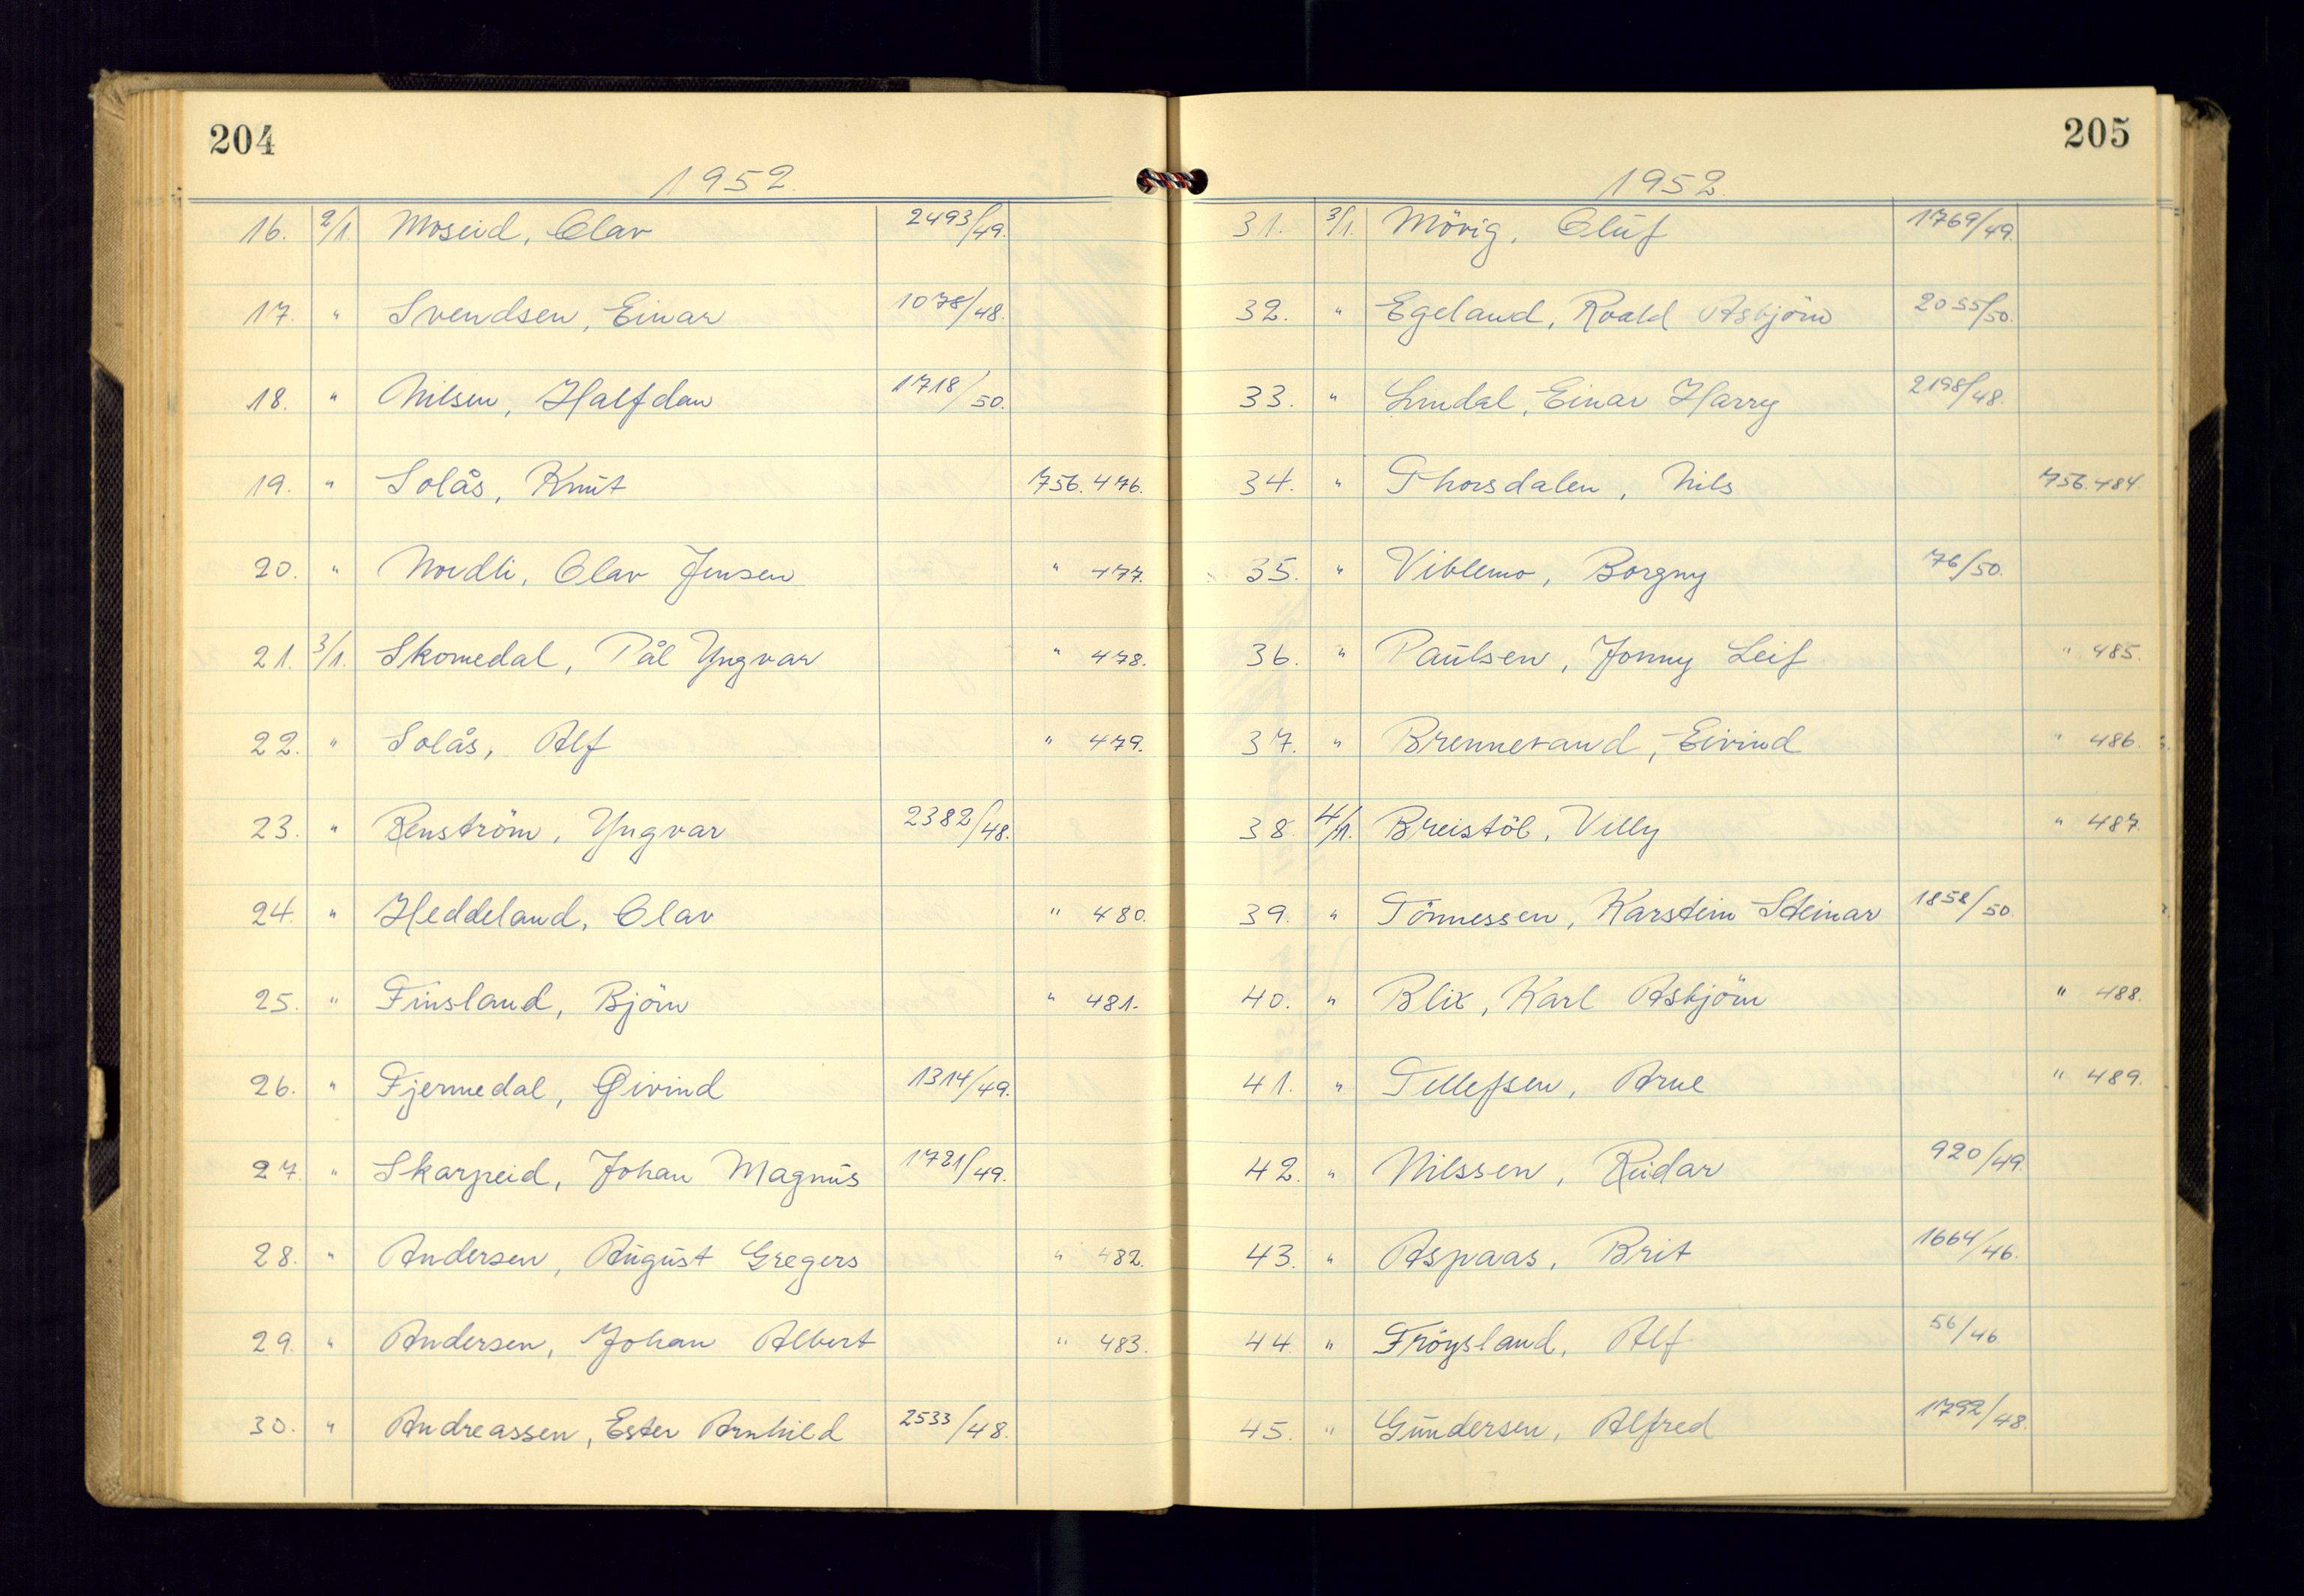 204
1952.
16. 2/1. Moseid, Olav 2493/49.
17. " Svendsen, Einar 1078/48.
18. " Nilsen, Halfdan 1718/50.
19. " Solås, Knut 756.476.
20. " Nordli, Olav Jensen " 477.
21. 3/1. Skomedal, Pål Yngvar " 478.
22. " Solås, Alf " 479.
23. " Renström, Yngvar 2382/48.
24. " Heddeland, Olav " 480.
25. " Finsland, Björn " 481.
26. " Fjermedal, Øivind 1314/49.
27. " Skarpeid, Johan Magnus 1721/49.
28. " Andersen, August Gregers " 482.
29. " Andersen, Johan Albert " 483.
30. " Andreassen, Ester Arnhild 2533/48.
205
1952.
31. 3/1. Mövig, Oluf 1769/49.
32. " Egeland, Roald Asbjörn 2055/50.
33. " Lindal, Einar Harry 2198/48.
34. " Thorsdalen, Nils 756.484.
35. " Viblemo, Borgny 76/50.
36. " Paulsen, Jonny Leif " 485.
37. " Brennesand, Eivind " 486.
38. 4/1. Breistöl, Villy " 487.
39. " Tönnessen, Karstein Steinar 1858/50.
40. " Blix, Karl Asbjörn " 488.
41. " Tellefsen, Arne " 489.
42. " Nilssen, Reidar 920/49.
43. " Aspaas, Brit 1664/46.
44. " Fröysland, Alf 56/46.
45. " Gundersen, Alfred 1792/48.